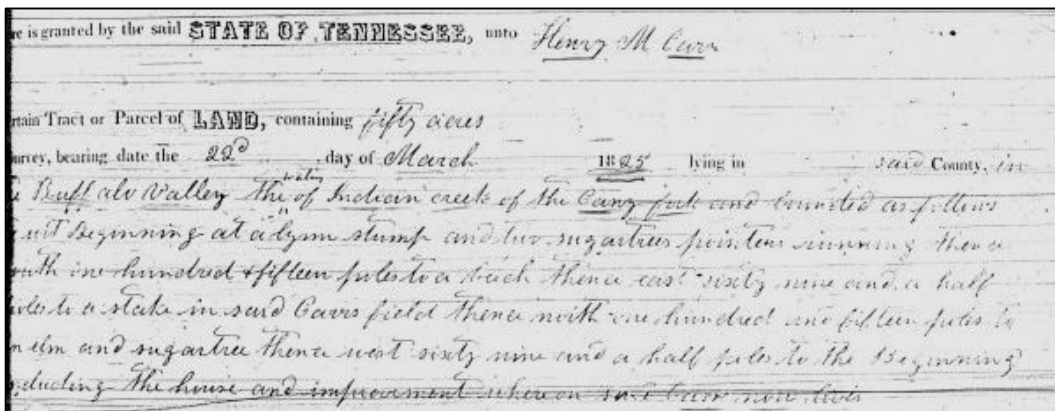 re is granted by the said STATE OF TENNESSEE, unto Henry M Carr
rtain Tract or Parcel of LAND, containing fifty acres
urvey, bearing date the 22d day of March 1825 lying in said County, in
Buffalo Valley the waters of Indian creek of the Cany fork and bounded as follows
wit Beginning at a lynn stump and two sugartrees pointers running thence
outh one hundred & fifteen poles to a beach thence east sixty nine and a half
poles to a stake in said Carrs field thence north one hundred and fifteen poles to
n elm and sugartree thence west sixty nine and a half poles to the Beginning
ncluding the house and improvement whereon said Carr now lives